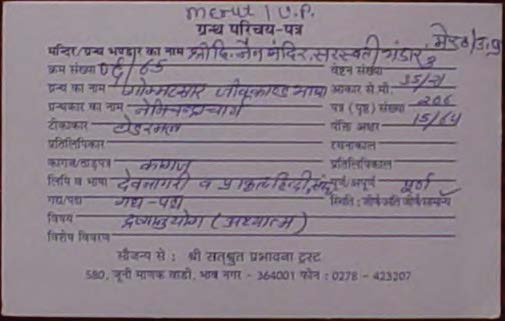 Merut / U.P.
ग्रन्थ परिचय-पत्र
मन्दिर/ग्रन्थ भण्डार का नाम श्री दि. जैन मंदिर, सरस्वती भंडार, मेरठ/उ.प्र
क्रम संख्या 08/65 वेष्टन संख्या 3
ग्रन्थ का नाम गोम्मटसार जीवकाण्ड भाषा आकार से.मी.
ग्रन्थकार का नाम नेमिचन्द्राचार्य पत्र (पृष्ठ) संख्या 206
टीकाकार टोडरमल पंक्ति अक्षर 15/64
प्रतिलिपिकार रचनाकाल
कागज/ताड़पत्र कागज प्रतिलिपिकाल
लिपि व भाषा देवनागरी व प्राकृत हिन्दी, संस्कृत पूर्ण/अपूर्ण पूर्ण
गद्य/पद्य गद्य-पद्य स्थिति : जीर्ण/अति जीर्ण/सामान्य
विषय द्रव्यानुयोग (अध्यात्म)
विशेष विवरण
सौजन्य से : श्री सत्श्रुत प्रभावना ट्रस्ट
580, जूनी माणक वाडी, भाव नगर - 364001 फोन : 0278 - 423207